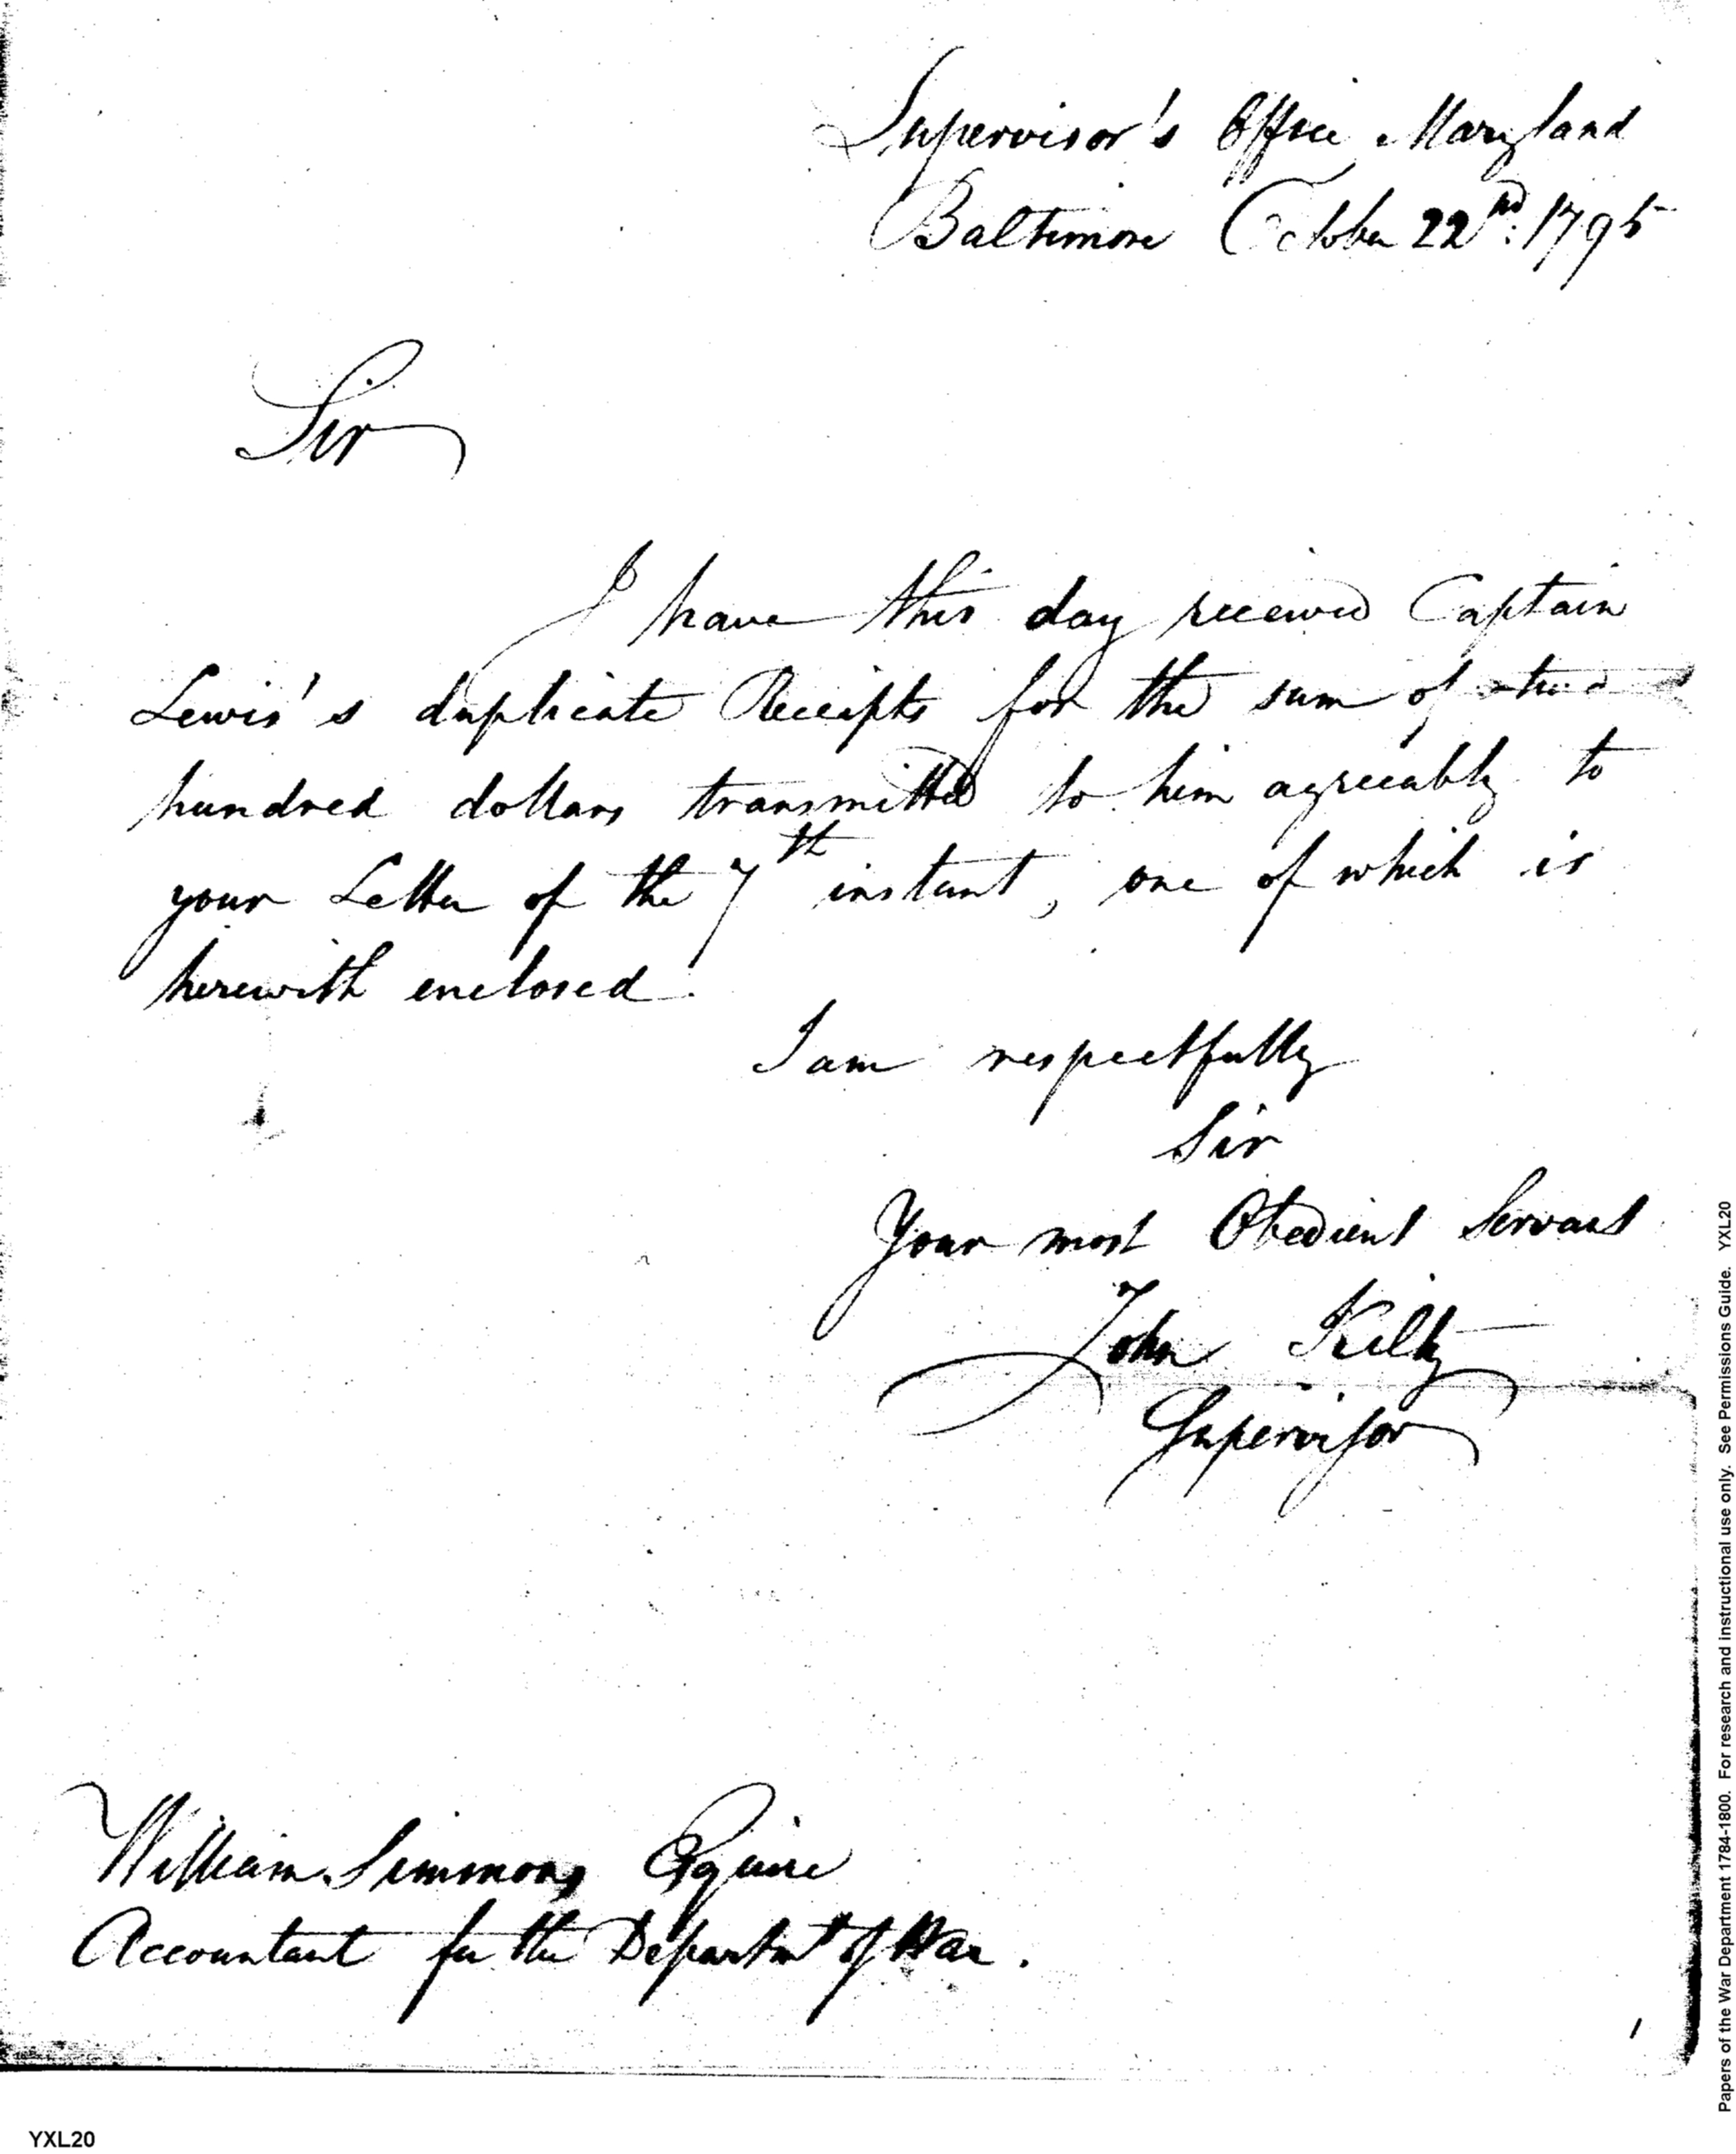 Supervisor's Office Maryland
Baltimore October 22nd: 1795
Sir
I have this day received Captain
Lewis's duplicate Receipts for the sum of
hundred dollars transmitted to him agreeably to
your Letter of the 7th instant, one of which is
herewith enclosed.
I am respectfully
Sir
Your most Obedient Servant
John Kilty
Supervisor
William Simmons Esquire
Accountant for the Departmt of War.
Papers of the War Department 1784-1800. For research and instructional use only. See Permissions Guide. YXL20
YXL20